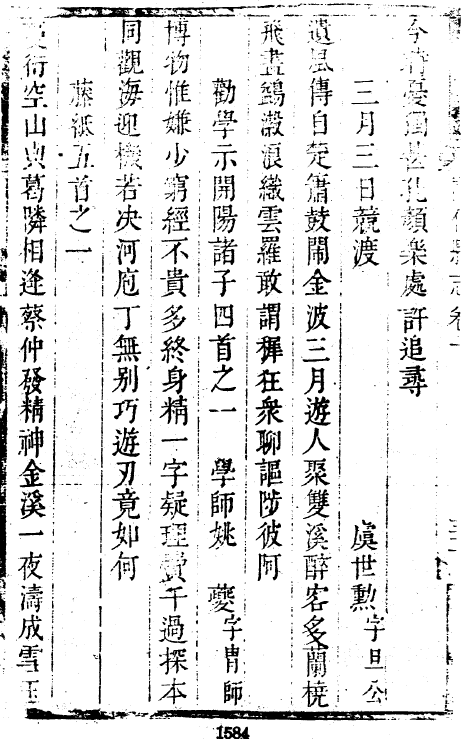 今稽憂獨甚孔顏樂處許追尋
三月三日競渡 虞世勲字旦公
遺風傳自楚簫鼓鬧金波三月遊人聚雙溪醉客多蘭橈
飛畫鷁瀔浪織雲羅敢謂穉狂衆聊謳陟彼阿
勸學示開陽諸子四首之一 學師姚夔字胄師
博物惟嫌少窮經不貴多終身精一字疑理費千過探本
同觀海迎機若决河庖丁無别巧遊刃竟如何
藤紙五首之一
衍空山與葛隣相逢蔡仲發精神金溪一夜濤成雪玉
1584